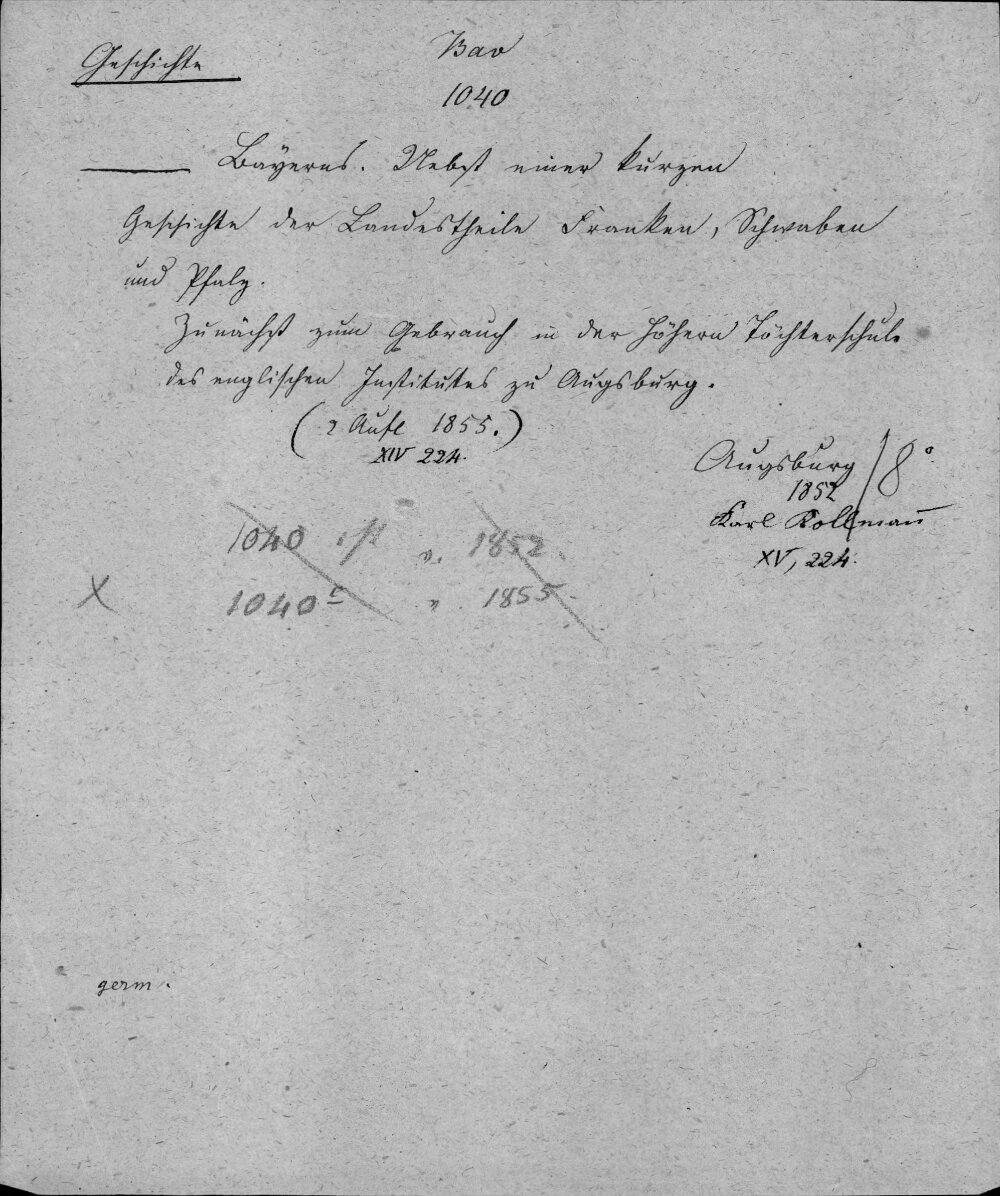 Geschichte
Bav
1040
——— Bayerns. Nebst einer kurzen
Geschichte der Landestheile Franken, Schwaben
und Pfalz.
Zunächst zum Gebrauch in der höhern Töchterschule
des englischen Institutes zu Augsburg.
(2 Aufl 1855.)
XIV 224.
Augsburg 8°
1852
Karl Kollmann
XV, 224.
1040 v. 1852.
X 1040 c " 1855.
germ.